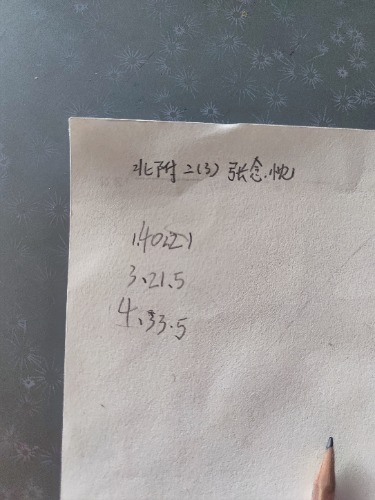 北附二(3)张念忱
1.40221
3.21.5
4.33.5